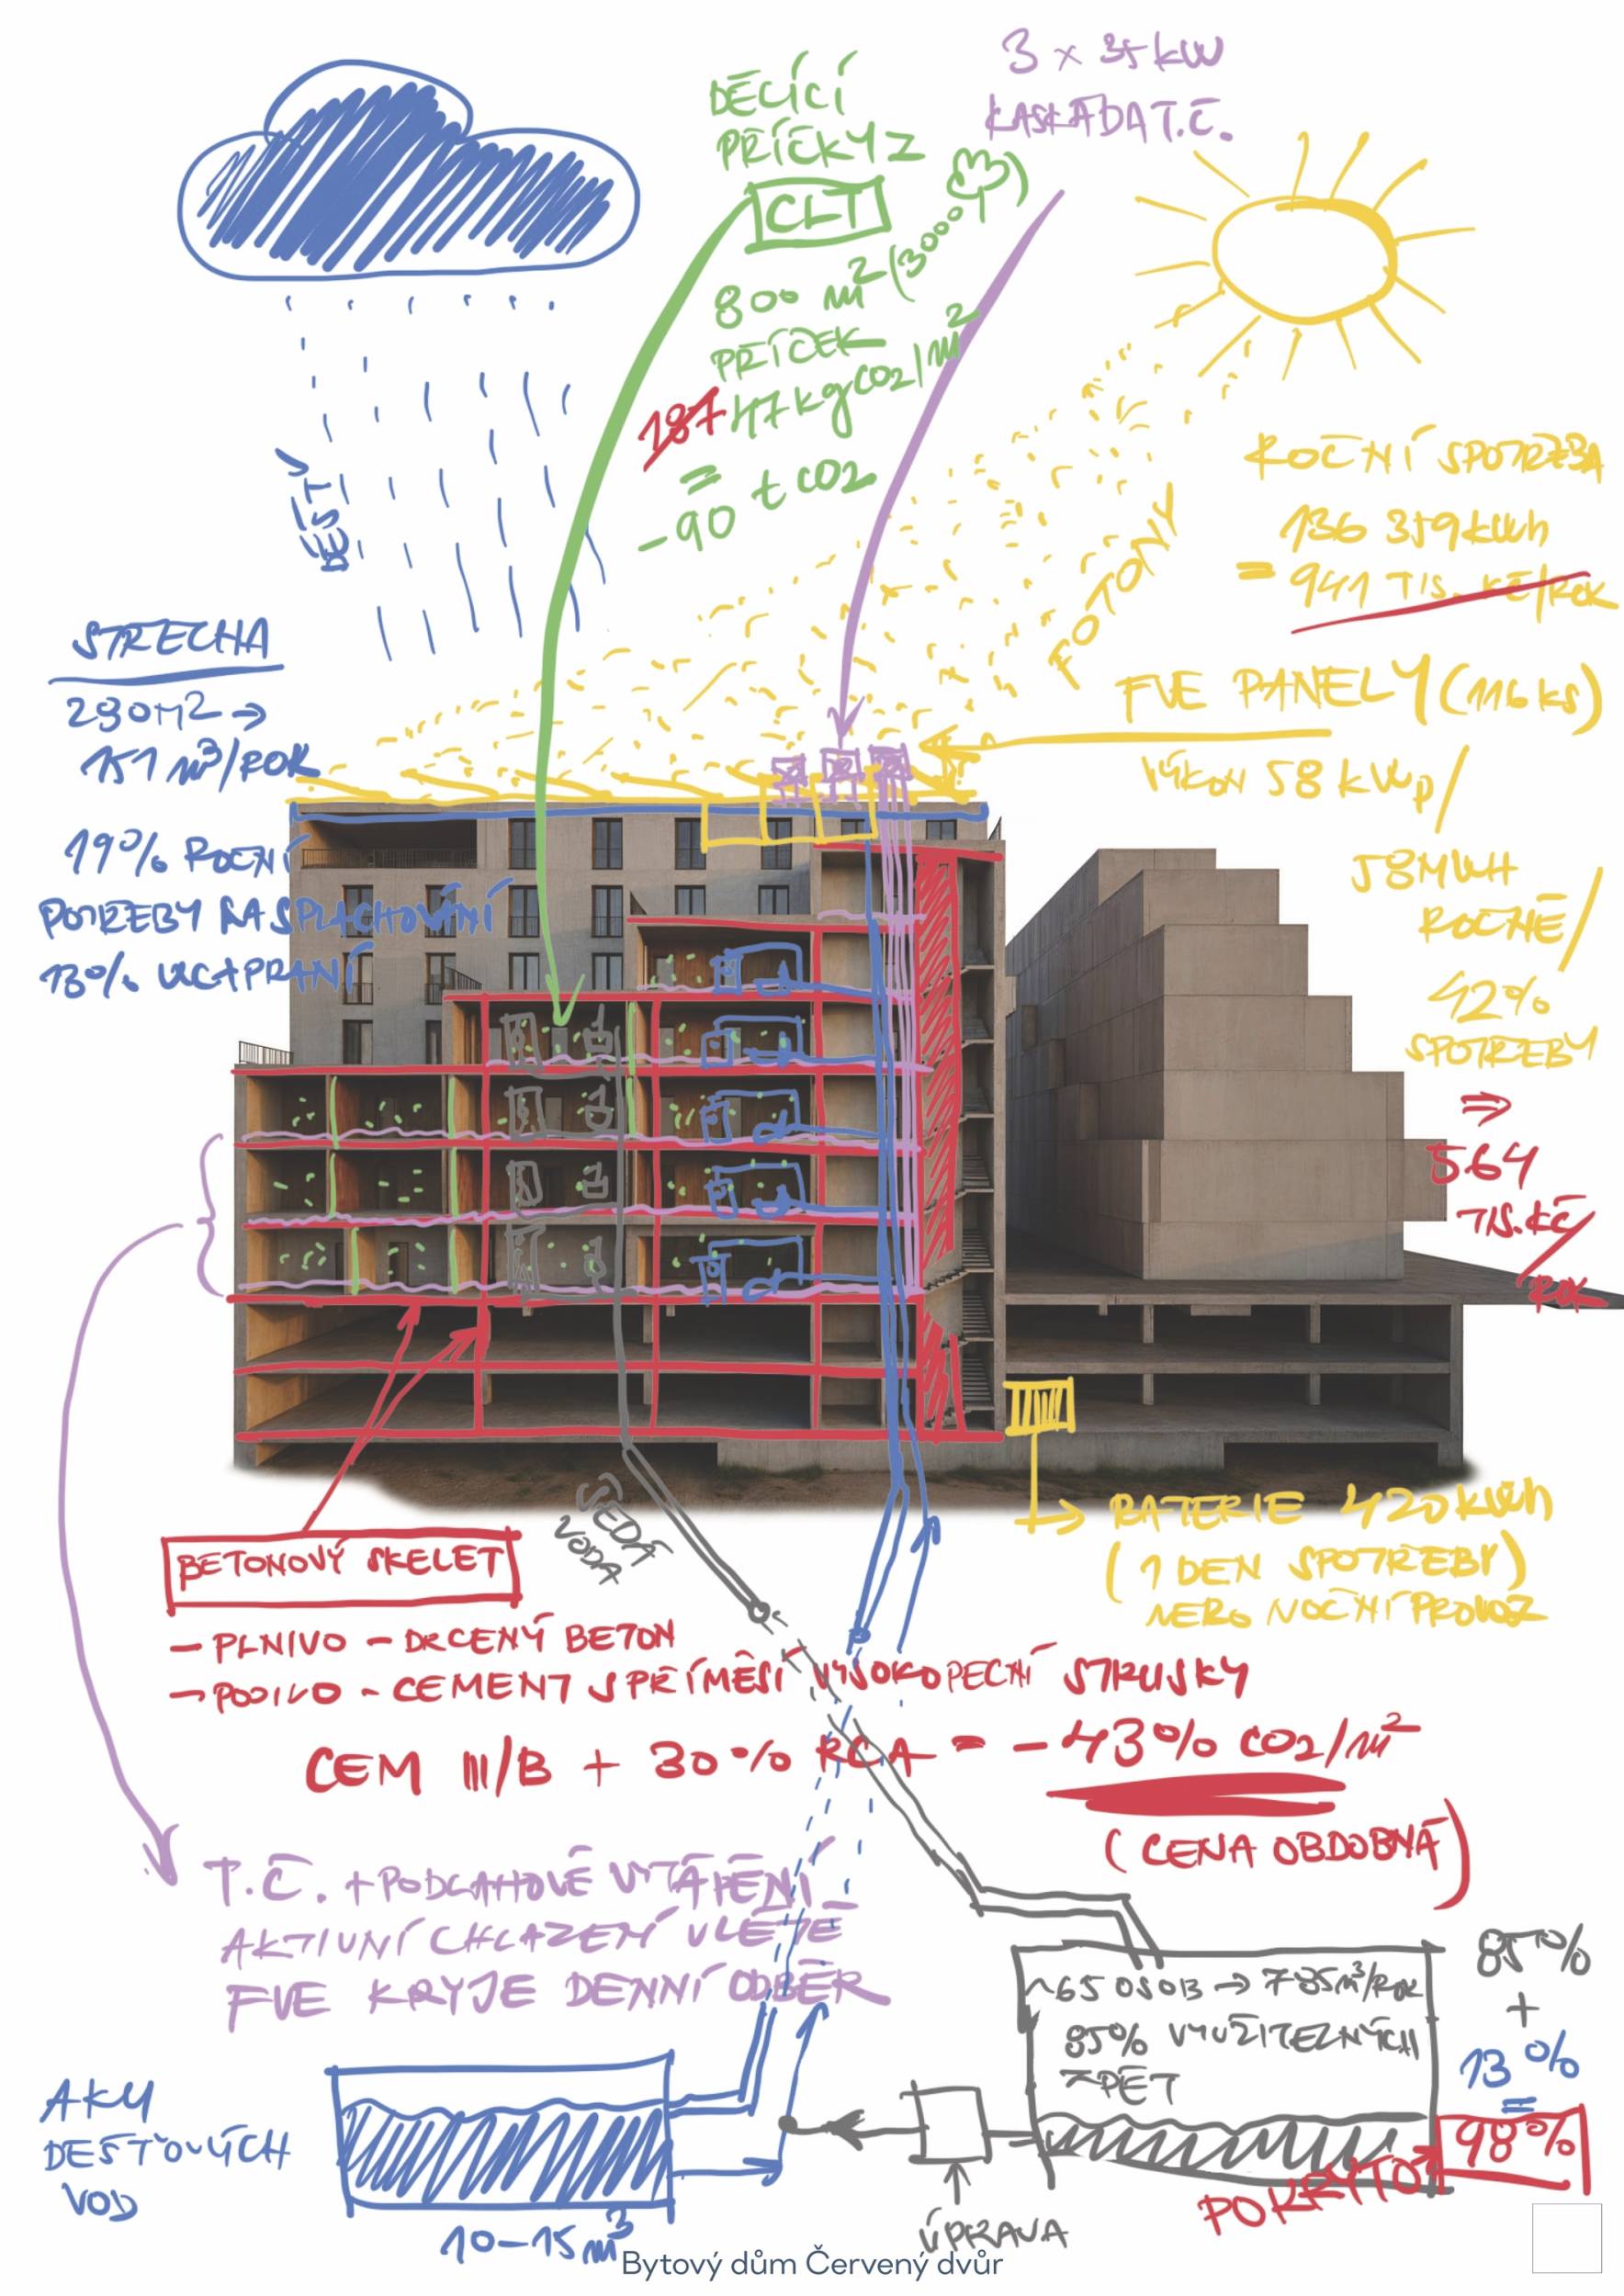 3 x 35 kW
KASKÁDA T.Č.
DĚLÍCÍ
PŘÍČKY Z
CLT
800 m² (3000)
PŘÍČEK
187 47 kg CO2/m²
=
-90 t CO2
DÉŠŤ
FOTÓNY
ROČNÍ SPOTŘEBA
136 359 kWh
= 941 TIS. KČ/ROK
FVE PANELY (116 ks)
VÝKON 58 kWp/
58 MWH
ROČNĚ/
42%
SPOTŘEBY
⇒
564
TIS. KČ/
ROK
STŘECHA
290 M2 →
151 m³/ROK
19% ROČNÍ
POTŘEBY NA SPLACHOVÁNÍ
13% VČ. PRANÍ
BATERIE 420 kWh
(1 DEN SPOTŘEBY)
NEBO NOČNÍ PROVOZ
ŠEDÁ
VODA
BETONOVÝ SKELET
- PLNIVO - DRCENÝ BETON
- POJIVO - CEMENT S PŘÍMĚSÍ VYSOKOPECNÍ STRUSKY
CEM III/B + 30% RCA = -43% CO2/m²
(CENA OBDOBNÁ)
T.Č. + PODLAHOVÉ VYTÁPĚNÍ
AKTIVNÍ CHLAZENÍ V LÉTĚ
FVE KRYJE DENNÍ ODBĚR
~65 OSOB → 785 m³/ROK
85% VYUŽITELNÝCH
ZPĚT
85%
+
13%
=
98%
POKRYTO
AKU
DEŠŤOVÝCH
VOD
10-15 m³
ÚPRAVA
Bytový dům Červený dvůr